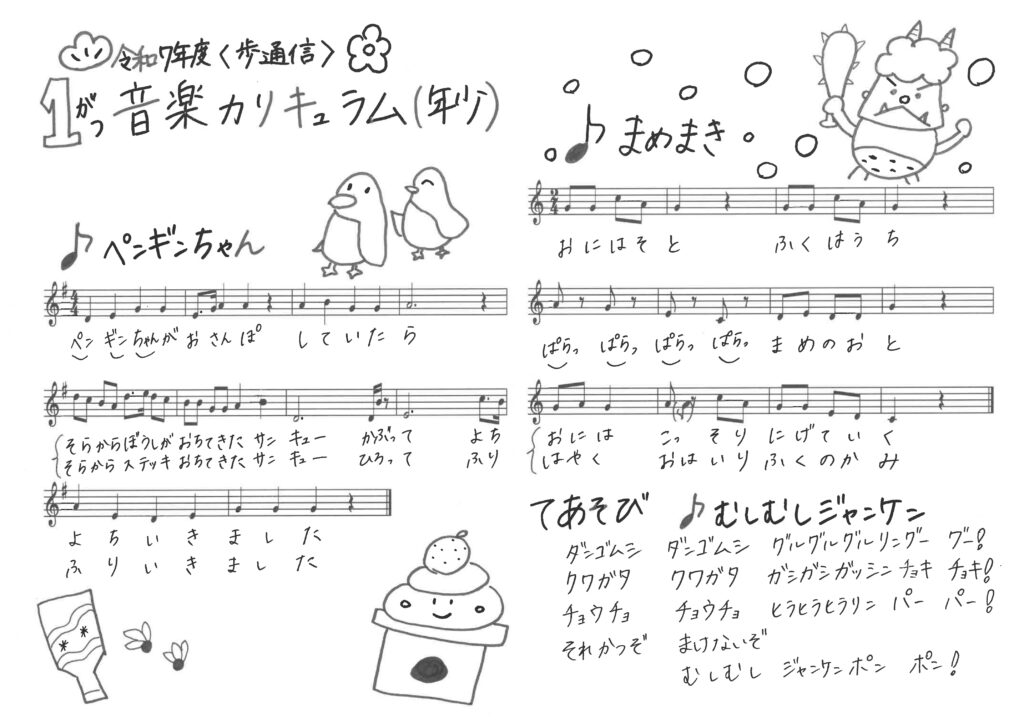 令和7年度〈歩通信〉
1がつ 音楽カリキュラム(年少)
ペンギンちゃん
ペンギンちゃんが おさんぽ していたら
そらからぼうしが おちてきた サンキュー かぶって よち
そらからステッキ おちてきた サンキュー ひろって ふり
よちいきました
ふりいきました
まめまき
おにはそと ふくはうち
ぱらっ ぱらっ ぱらっ ぱらっ まめのおと
おには こっそり にげていく
はやく おはいり ふくのかみ
てあそび むしむしジャンケン
ダンゴムシ ダンゴムシ グルグルグルリングー グー!
クワガタ クワガタ ガシガシガッシンチョキ チョキ!
チョウチョ チョウチョ ヒラヒラヒラリン パー パー!
それかつぞ まけないぞ
むしむし ジャンケンポン ポン!